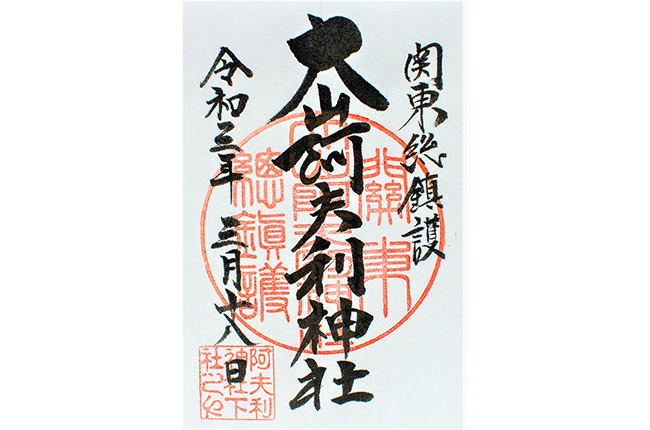 関東総鎮護
大山阿夫利神社
令和三年 三月十八日
關東
總鎮護
阿夫利
神社下
社之也